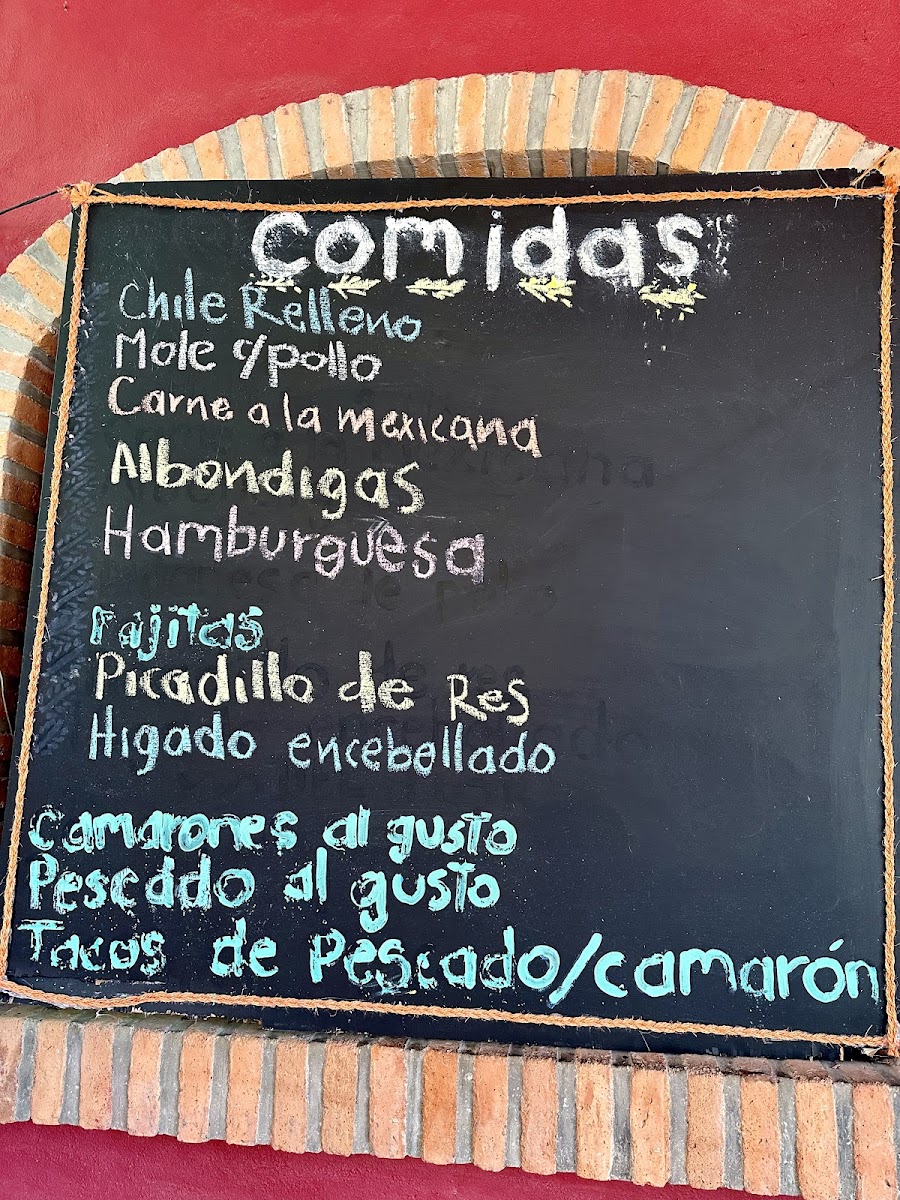 Comidas
Chile Relleno
Mole c/pollo
Carne a la mexicana
Albondigas
Hamburguesa
Fajitas
Picadillo de Res
Higado encebollado
Camarones al gusto
Pescado al gusto
Tacos de Pescado/camarón